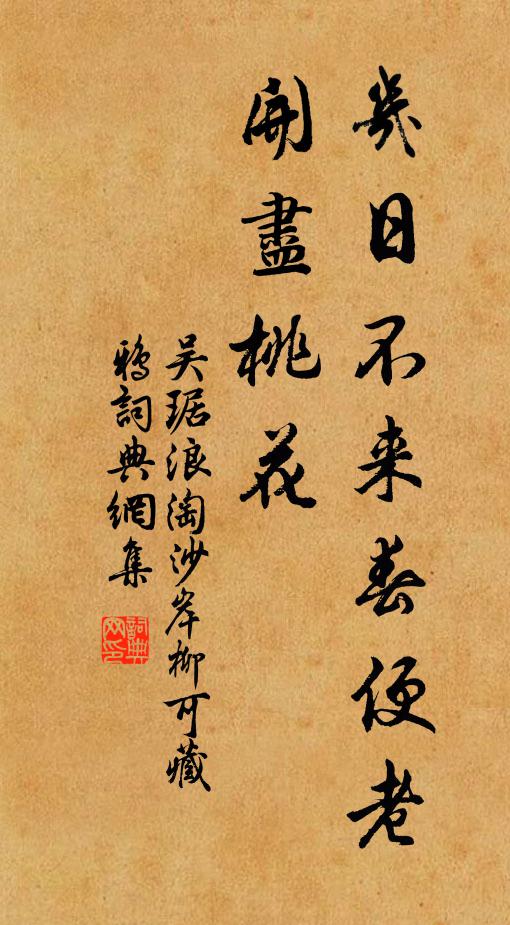 幾日不来春便老
開盡桃花
吴琚浪淘沙岸柳可藏
鴉詞典網集
詞典網印